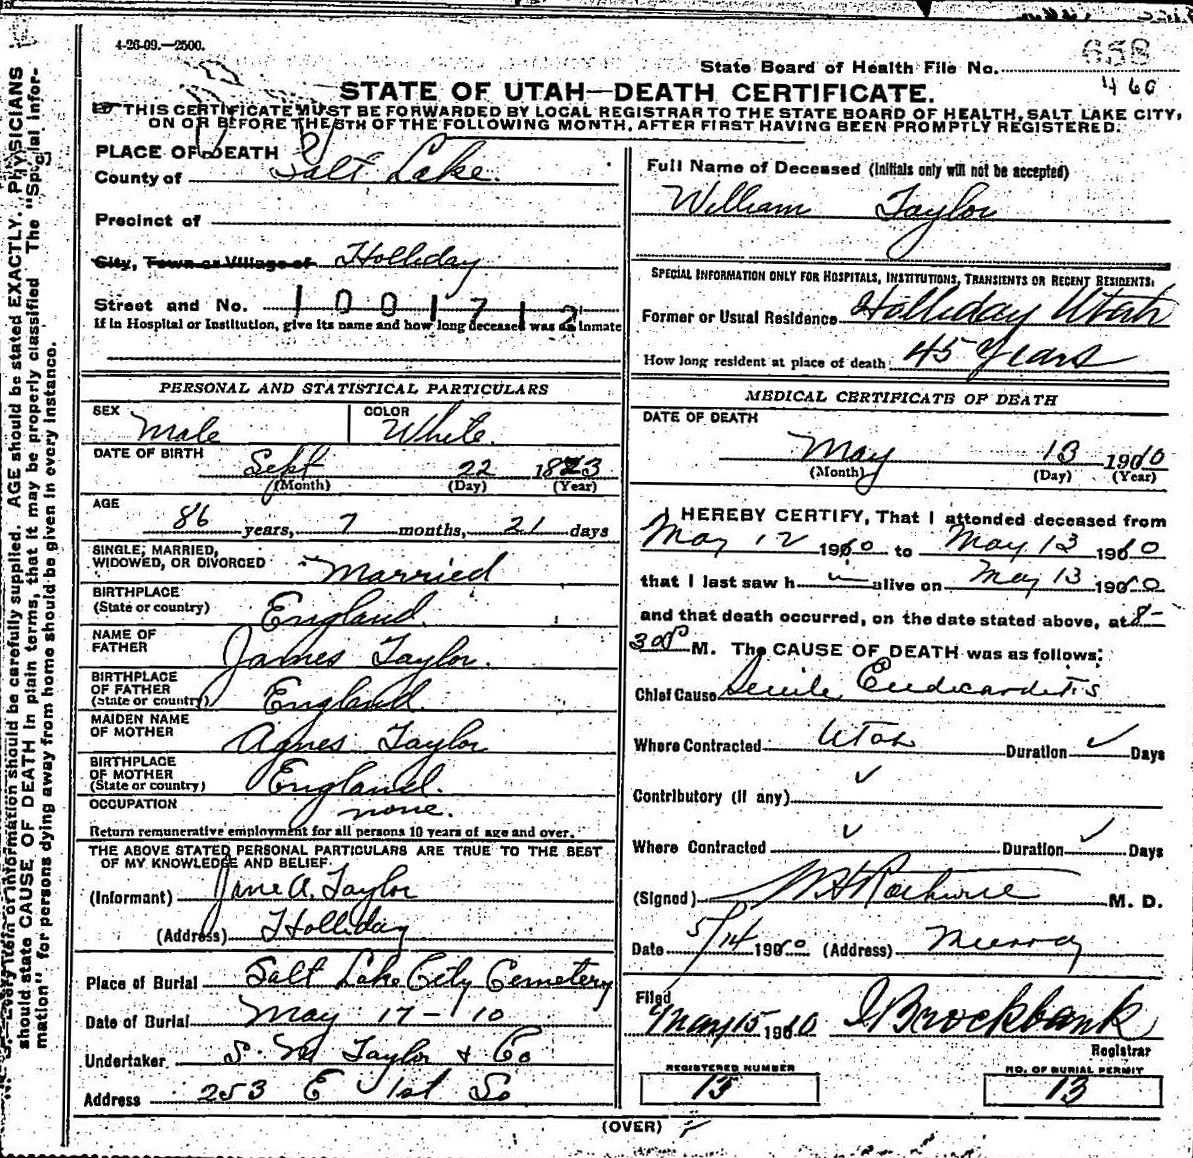 4-26-09.—2500.
658
State Board of Health File No.
460
STATE OF UTAH—DEATH CERTIFICATE.
THIS CERTIFICATE MUST BE FORWARDED BY LOCAL REGISTRAR TO THE STATE BOARD OF HEALTH, SALT LAKE CITY,
ON OR BEFORE THE 5TH OF THE FOLLOWING MONTH, AFTER FIRST HAVING BEEN PROMPTLY REGISTERED.
PLACE OF DEATH
County of Salt Lake.
Precinct of
City, Town or Village of Holliday
Street and No. 1001712
If in Hospital or Institution, give its name and how long deceased was an inmate
PERSONAL AND STATISTICAL PARTICULARS
SEX Male COLOR White.
DATE OF BIRTH Sept 22 1823
(Month) (Day) (Year)
AGE 86 years, 7 months, 21 days
SINGLE, MARRIED,
WIDOWED, OR DIVORCED Married
BIRTHPLACE
(State or country) England.
NAME OF
FATHER James Taylor.
BIRTHPLACE
OF FATHER
(State or country) England.
MAIDEN NAME
OF MOTHER Agnes Taylor
BIRTHPLACE
OF MOTHER
(State or country) England.
OCCUPATION none.
Return remunerative employment for all persons 10 years of age and over.
THE ABOVE STATED PERSONAL PARTICULARS ARE TRUE TO THE BEST
OF MY KNOWLEDGE AND BELIEF.
(Informant) Jane A. Taylor
(Address) Holliday
Place of Burial Salt Lake City Cemetery
Date of Burial May 17-10
Undertaker S. M Taylor & Co
Address 253 E 1st So
Full Name of Deceased (Initials only will not be accepted)
William Taylor
SPECIAL INFORMATION ONLY FOR HOSPITALS, INSTITUTIONS, TRANSIENTS OR RECENT RESIDENTS.
Former or Usual Residence Holliday Utah
How long resident at place of death 45 Years
MEDICAL CERTIFICATE OF DEATH
DATE OF DEATH
May 13 1910
(Month) (Day) (Year)
I HEREBY CERTIFY, That I attended deceased from
May 12 1910 to May 13 1910
that I last saw him alive on May 13 1910
and that death occurred, on the date stated above, at 8-
30 P M. The CAUSE OF DEATH was as follows:
Chief Cause Senile Endicarditis
Where Contracted Utah Duration ✓ Days
✓
Contributory (if any)
Where Contracted ✓ Duration ✓ Days
(Signed) M. D.
Date 5/14 1910 (Address) Murray
Filed
May 15 1910 I Brockbank
Registrar
REGISTERED NUMBER
13
NO. OF BURIAL PERMIT
13
(OVER)
Every item of information should be carefully supplied. AGE should be stated EXACTLY. PHYSICIANS
should state CAUSE OF DEATH in plain terms, that it may be properly classified The "Special Infor-
mation" for persons dying away from home should be given in every instance.